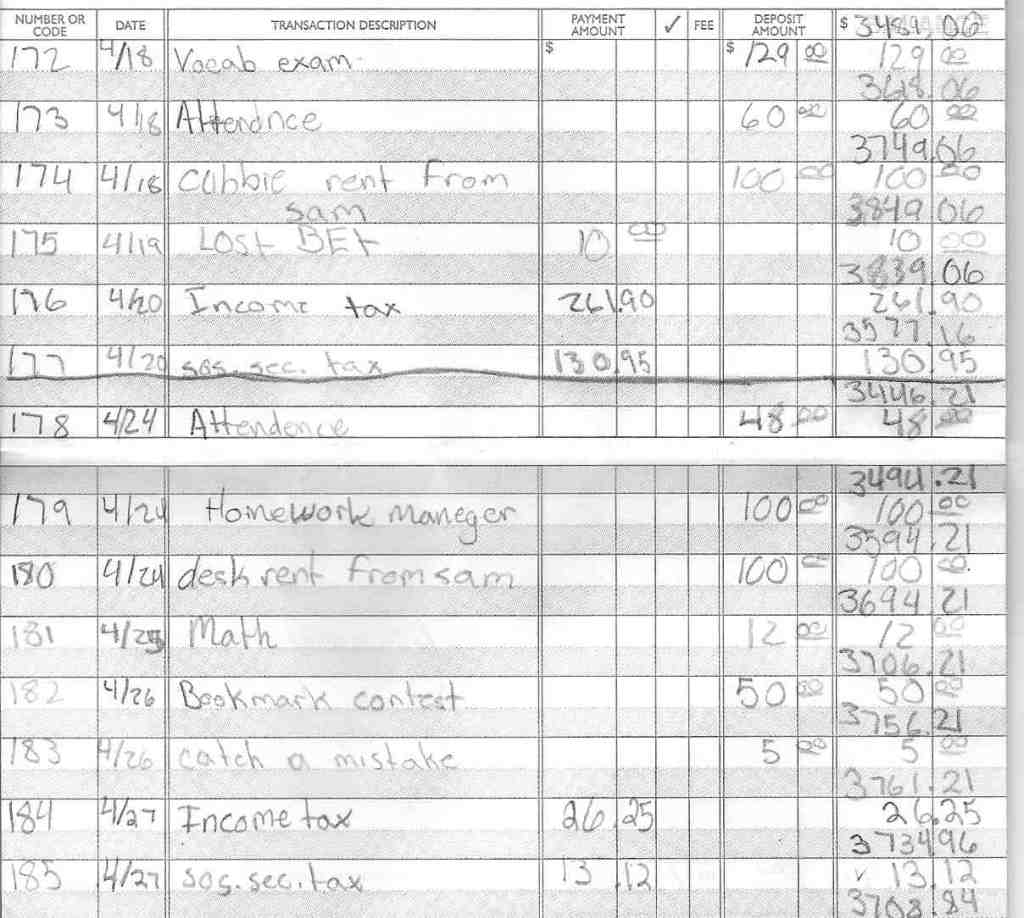 NUMBER OR CODE DATE TRANSACTION DESCRIPTION PAYMENT AMOUNT ✓ FEE DEPOSIT AMOUNT $ 3489.06
172 4/18 Vocab exam $ $ 129 00 129 00
3618.06
173 4/18 Attendnce 60 00 60 00
3749.06
174 4/18 cubbie rent from 100 00 100 00
sam 3849 06
175 4/19 LOST BET 10 00 10 00
3839.06
176 4/20 Income tax 261.90 261.90
3577.16
177 4/20 sos. sec. tax 130.95 130.95
3446.21
178 4/24 Attendence 48 00 48 00
3494.21
179 4/24 Homework maneger 100 00 100 00
3594.21
180 4/24 desk rent from sam 100 00 100 00
3694.21
181 4/25 Math 12 00 12 00
3706.21
182 4/26 Bookmark contest 50 00 50 00
3756.21
183 4/26 catch a mistake 5 00 5 00
3761.21
184 4/27 Income tax 26.25 26.25
3734 96
185 4/27 sos. sec. tax 13.12 13.12
3708.84